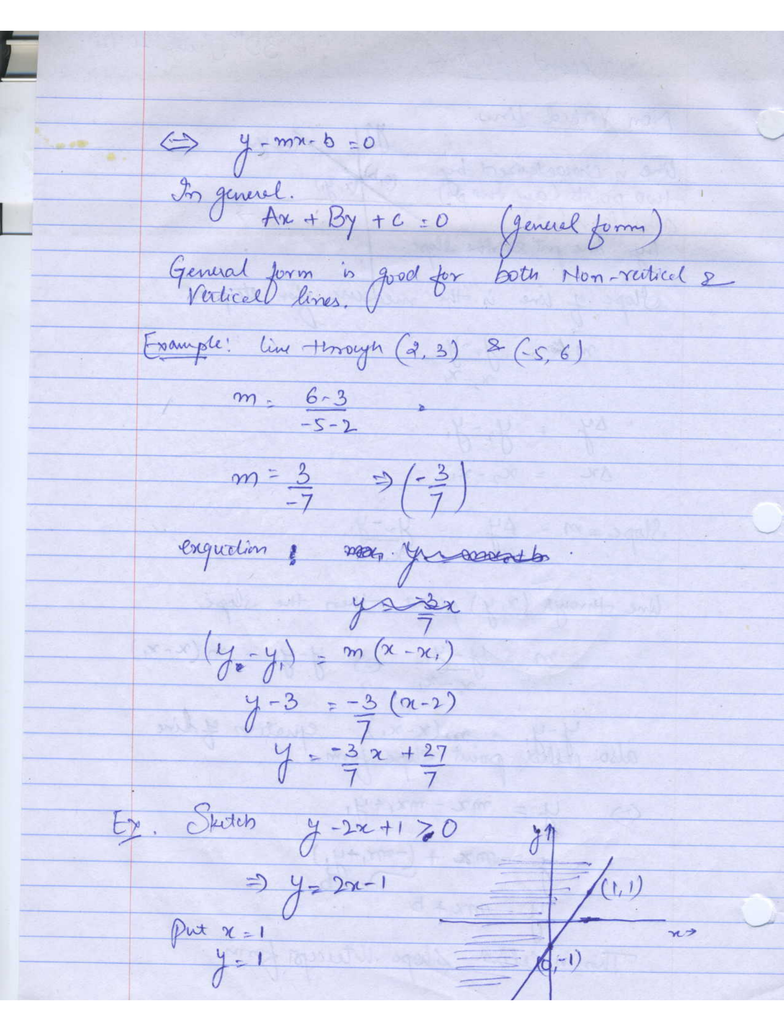 ⇔ y - mx - b = 0
In general.
Ax + By + C = 0 (general form)
General form is good for both Non-vertical &
Vertical lines.
Example: line through (2, 3) & (-5, 6)
m = 6-3 / -5-2
m = 3/-7 ⇒ (-3/7)
exquation :
y = -3/7 x
(y - y₁) = m (x - x₁)
y - 3 = -3/7 (x - 2)
y = -3/7 x + 27/7
Ex. Sketch y - 2x + 1 ≥ 0
⇒ y = 2x - 1
Put x = 1
y = 1
y↑
(1, 1)
x→
(0, -1)